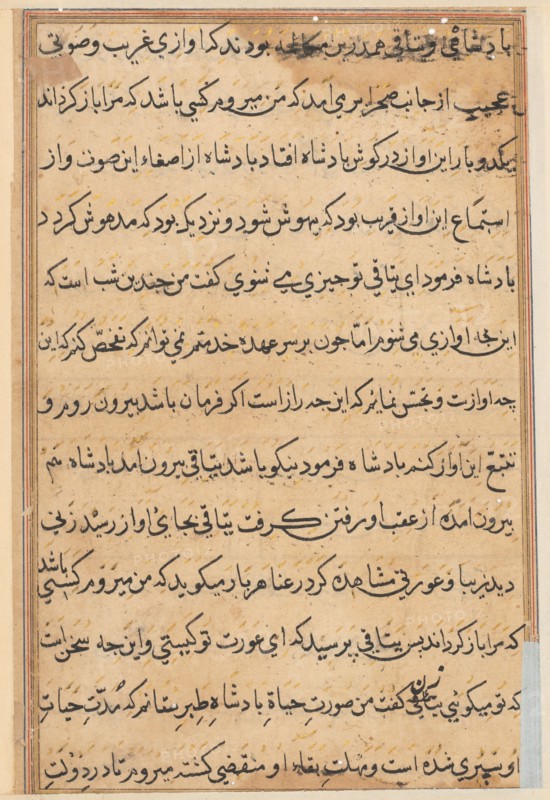 بادشاهی و یتاقی همدرین مکالمه بودند که اوازی غریب وصوتی
عجیب از جانب صحرا بر می امد که من میروم کسی باشد که مرا باز کرداند
یکدو بار این اواز در کوش بادشاه افتاد بادشاه از اصغاء این صوت واز
استماع این اواز قریب بود که بیهوش شود ونزدیک بود که مدهوش کردد
بادشاه فرمود ای یتاقی تو جیزی می شنوی کفت من جندین شب است که
این اوازی می شنوم اما جون بر سر عهده خدمتم نمی توانم که تفحص کنم که این
چه اوازت و تجسس نمایم که این جه راز است اکر فرمان باشد بیرون روم و
تتبع این اواز کنم بادشاه فرمود نیکو باشد یتاقی بیرون امد بادشاه هم
بیرون امده از عقب او رفتن کرفت یتاقی بجای اواز رسید زنی
دید زیبا وعورتی مشاهده کرد رعنا هر بار میکوید که من میروم کسی باشد
که مرا باز کرداند بس یتاقی پرسید که ای عورت تو کیستی واین جه سخن است
که تو میکوئی زن کفت من صورت حیاة بادشاه طبرستانم که مدت حیات
او سپری شده است ومهلت بقاء او منقضی کشته میروم تا در دولت